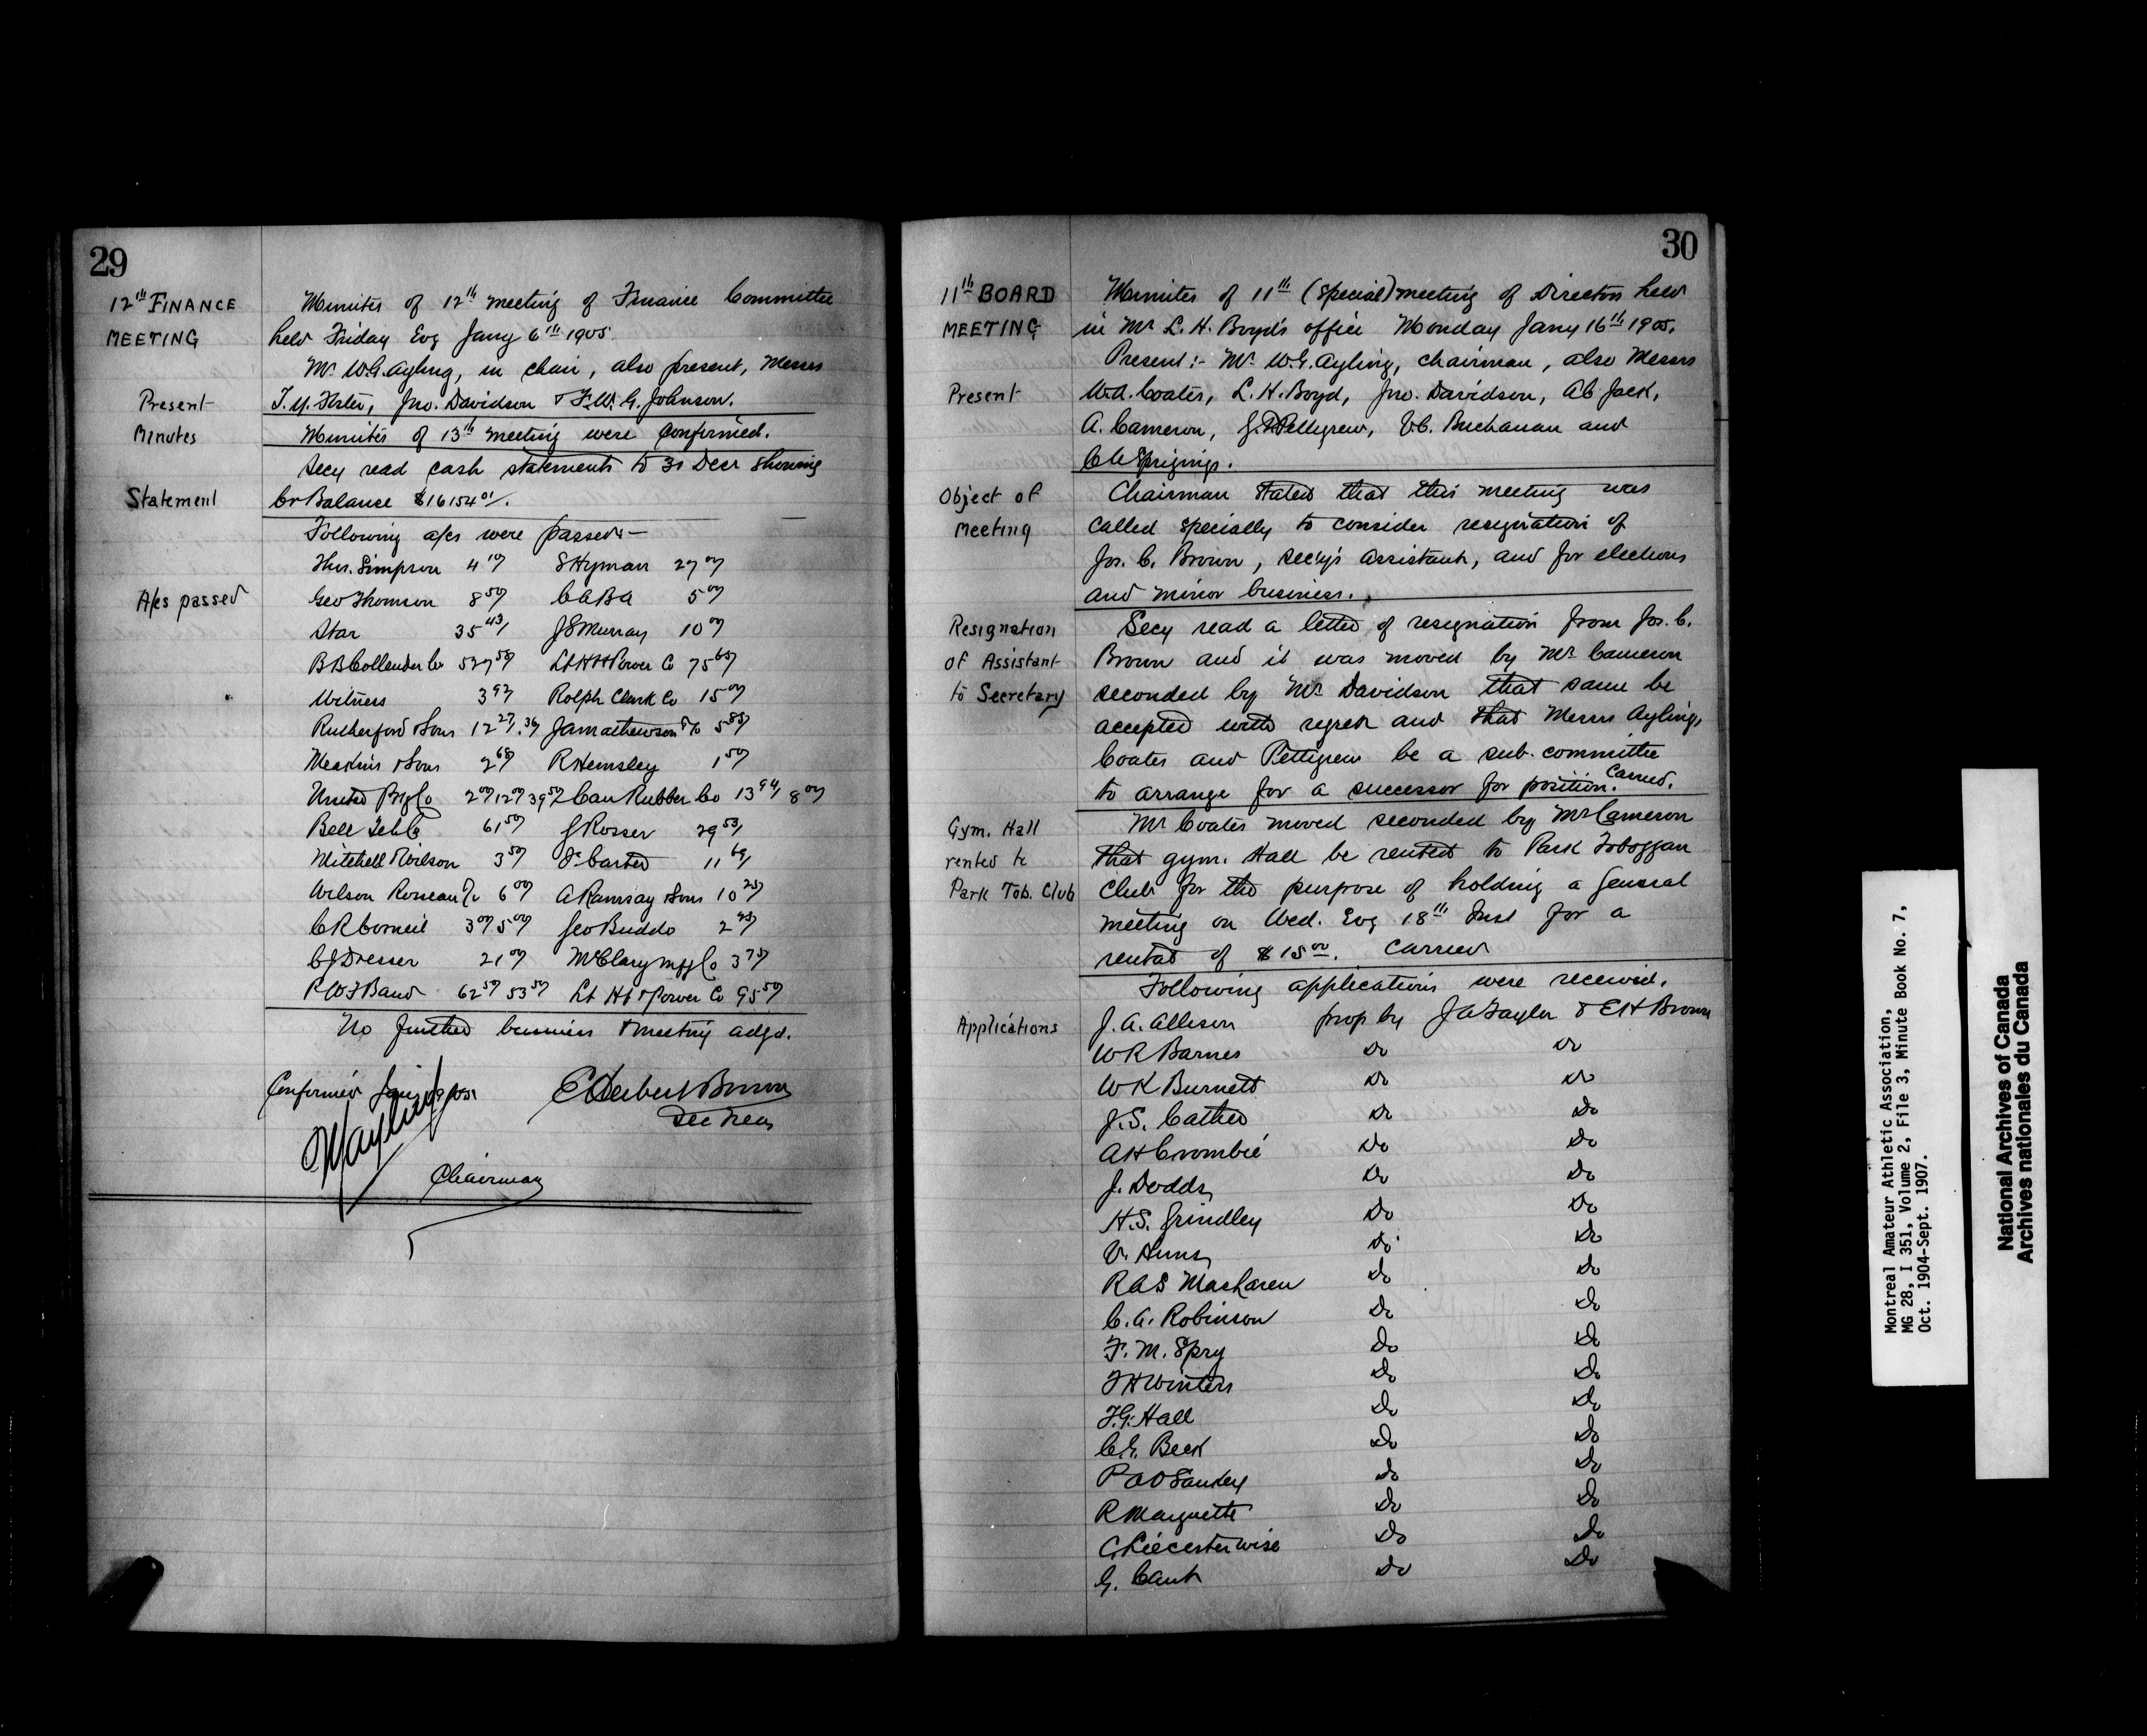 29
12th FINANCE
MEETING
Minutes of 12th meeting of Finance Committee
held Friday Evg Jany 6th 1905
Mr W.G. Ayling, in chair, also present, Messrs
Present
T.Y. Foster, Jno. Davidson & F.W.G. Johnson.
Minutes
Minutes of 13th meeting were confirmed.
Secy read cash statements to 31 Decr showing
Statement
Cr Balance $16154 01/.
Following a/cs were passed:—
Thos. Simpson 4 10/ S Hyman 27 00/
A/cs passed
Geo Thomson 8 50/ C A B A 5 00/
Star 35 43/ J S Murray 10 00/
B B Collender Co 527 50/ Lt H & Power Co 75 65/
Witness 3 92/ Rolph Clark Co 15 00/
Rutherford & Sons 12 27/ .36/ J A Mathewson & Co 5 85/
Meakins & Sons 2 68/ R Hemsley 1 50/
United Ptg Co 2 00/ 12 00/ 39 50/ Can Rubber Co 13 94/ 8 00/
Bell Tel Co 61 50/ J Rosser 29 53/
Mitchell & Wilson 3 50/ F. Carter 11 69/
Wilson Rosseau Co 6 00/ A Ramsay & Sons 10 25/
C R Corneil 3 00/ 5 00/ Geo Buddo 2 25/
C J Dresser 21 00/ McClary Mfg Co 3 75/
P W F Band 62 50/ 53 50/ Lt Ht & Power Co 95 50/
No further business & meeting adjd.
Confirmed
E Herbert Brown
Sec Treas
W G Ayling
Chairman
30
11th BOARD
MEETING
Minutes of 11th (Special) meeting of Directors held
in Mr L. H. Boyd's office Monday Jany 16th 1905.
Present:- Mr W.G. Ayling, chairman, also Messrs
Present
W.A. Coates, L. H. Boyd, Jno. Davidson, A C Jack,
A. Cameron, J. D Pettigrew, V.C. Buchanan and
C W Spriggings.
Object of
Meeting
Chairman stated that this meeting was
called specially to consider resignation of
Jos. C. Brown, Secy's Assistant, and for elections
and minor business.
Resignation
of Assistant
to Secretary
Secy read a letter of resignation from Jos. C.
Brown and it was moved by Mr Cameron
seconded by Mr Davidson that same be
accepted with regret and that Messrs Ayling,
Coates and Pettigrew be a sub-committee
to arrange for a successor for position. Carried.
Gym. Hall
rented to
Park Tob. Club
Mr Coates moved seconded by Mr Cameron
that gym. Hall be rented to Park Toboggan
Club for the purpose of holding a general
meeting on Wed. Evg 18th Inst for a
rental of $15 00. Carried
Following applications were received.
Applications
J. A. Allison prop by J A Taylor & E H Brown
W R Barnes Do Do
W K Burnett Do Do
J. S. Cather Do Do
A H Crombie Do Do
J. Dodds Do Do
H. S. Grindley Do Do
V. Do Do
R A S MacLaren Do Do
C. A. Robinson Do Do
F. M. Spry Do Do
F H Winters Do Do
F. G. Hall Do Do
C G. Beck Do Do
P O Do Do
R Marguette Do Do
C. Leicester Wise Do Do
G. Cant Do Do
Montreal Amateur Athletic Association,
MG 28, I 351, Volume 2, File 3, Minute Book No. 7,
Oct. 1904-Sept. 1907.
National Archives of Canada
Archives nationales du Canada